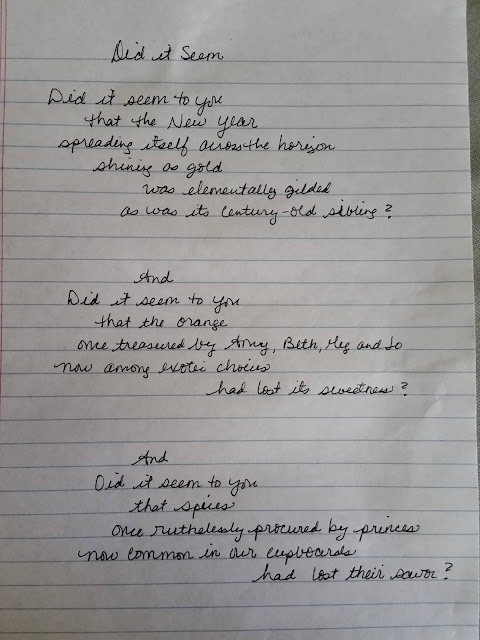 Did it Seem
Did it seem to you
that the New Year
spreading itself across the horizon
shining as gold
was elementally gilded
as was its century-old sibling?
And
Did it seem to you
that the orange
once treasured by Amy, Beth, Meg and Jo
now among exotic choices
had lost its sweetness?
And
Did it seem to you
that spices
once ruthlessly procured by princes
now common in our cupboards
had lost their savor?